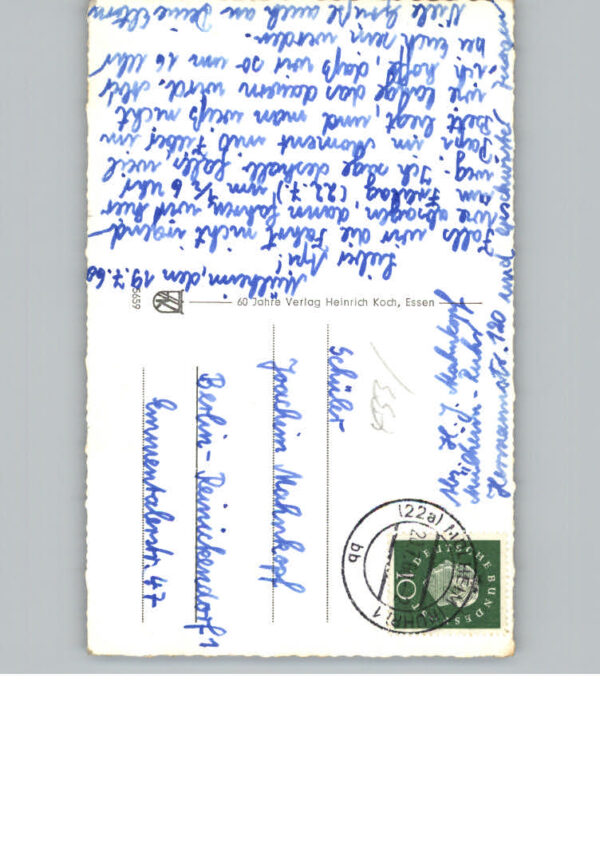 Mülheim, den 19.7.60
Lieber
Falls wir die Fahrt nicht irgend-
wie absagen, dann fahren wir hier
am Freitag (22.7.) um 1/2 6 Uhr
weg. Ich sage deshalb falls, weil
Papi im Moment mit Fieber im
Bett liegt, und man weiß nicht
wie lange das dauern wird. Aber
ich hoffe, daß wir so um 16 Uhr
bei Euch sein werden.
Viele Grüße auch an Deine Eltern
und Geschwister Jürgen
60 Jahre Verlag Heinrich Koch, Essen
5659
Abs. H. J. Mahnkopf
Mülheim-Ruhr
Hermannstr. 120
Schüler
Joachim Mahnkopf
Berlin-Reinickendorf 1
Emmentalerstr. 47
DEUTSCHE BUNDESPOST
10
(22a) MÜLHEIM (RUHR) 1